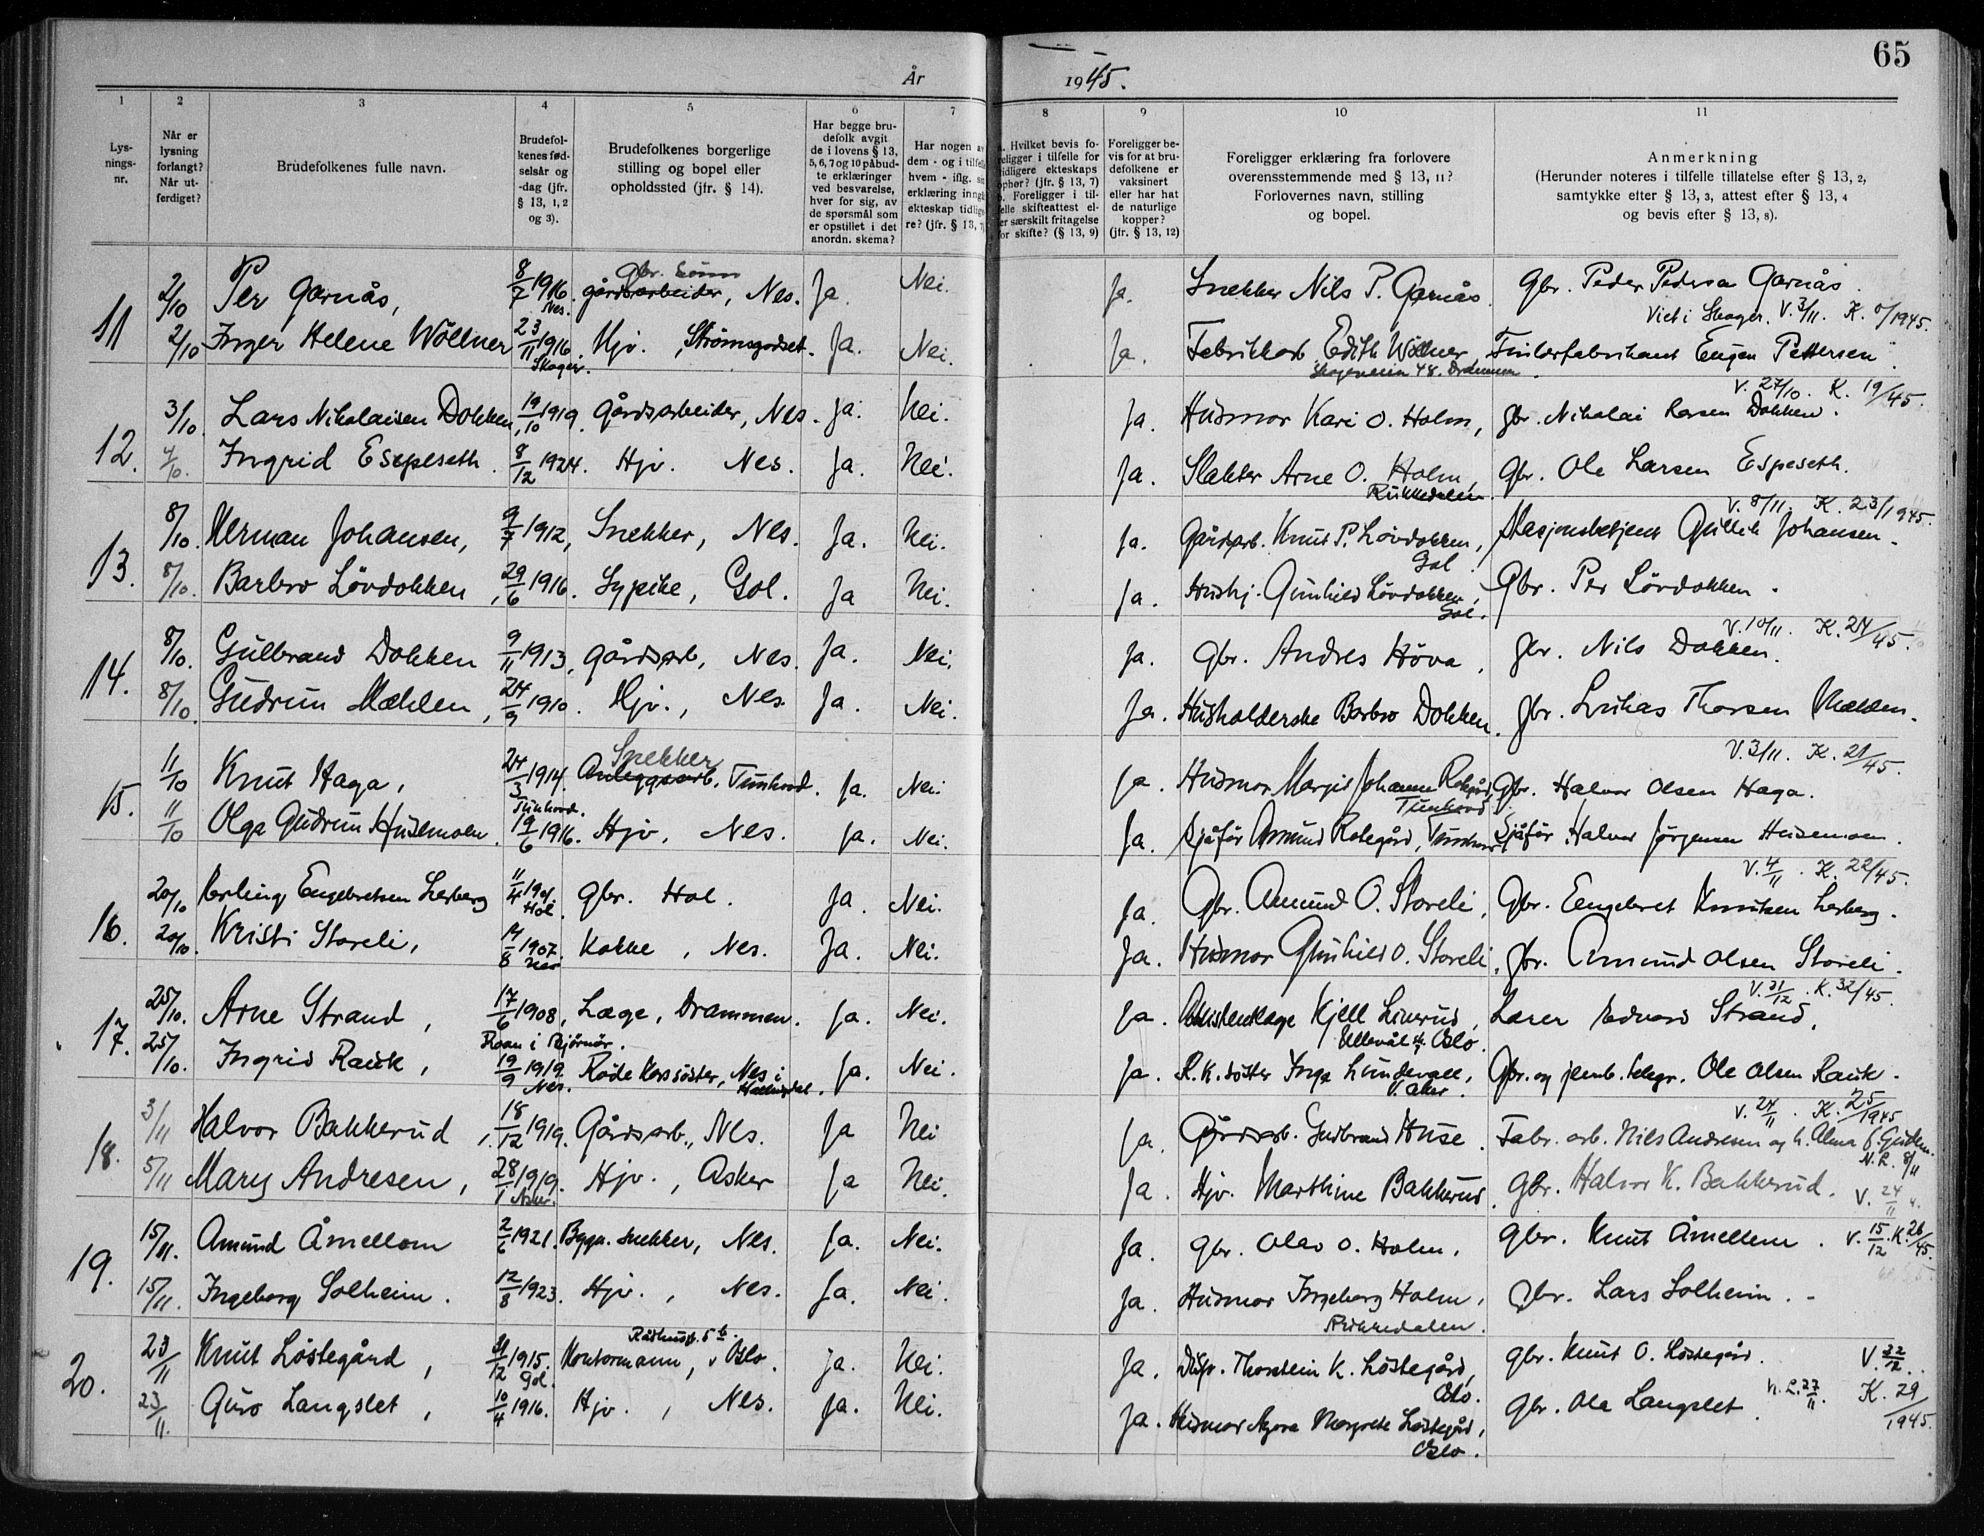 65
År 1945.
1 2 3 4 5 6 7 8 9 10 11
Lys-
nings-
nr.
Når er
lysning
forlangt?
Når ut-
ferdiget?
Brudefolkenes fulle navn.
Brudefol-
kenes fød-
selsår og
-dag (jfr.
§ 13, 1, 2
og 3).
Brudefolkenes borgerlige
stilling og bopel eller
opholdssted (jfr. § 14).
Har begge bru-
defolk avgit
de i lovens § 13,
5, 6, 7 og 10 påbud-
te erklæringer
ved besvarelse,
hver for sig, av
de spørsmål som
er opstillet i det
anordn. skema?
Har nogen a
dem - og i tilfel
hvem - iflg. s
erklæring inng
ekteskap tidlig
re? (jfr. § 13, 7
. Hvilket bevis fo-
religger i tilfelle for
tidligere ekteskaps
ophør? (jfr. § 13, 7)
. Foreligger i til-
felle skifteattest el-
er særskilt fritagelse
for skifte? (§ 13, 9)
Foreligger be-
vis for at bru-
defolkene er
vaksinert
eller har hat
de naturlige
kopper?
(jfr. § 13, 12)
Foreligger erklæring fra forlovere
overensstemmende med § 13, 11?
Forlovernes navn, stilling
og bopel.
Anmerkning
(Herunder noteres i tilfelle tillatelse efter § 13, 2,
samtykke efter § 13, 3, attest efter § 13, 4
og bevis efter § 13, 8).
11 2/10 Per Garnås, 8/7 1916. Nes. Gbr. sønn gårdsarbeider, Nes. Ja. Nei. Ja. Snekker Nils P. Garnås. Gbr. Peder Pedersen Garnås.
Viet i Skoger. V. 3/11. K. /1945.
2/10 Inger Helene Wöllner 23/11 1916. Skoger. Hjv. Strømsgodset. Ja. Nei. Ja. Fabrikkarb. Edith Wöllner, Skogerveien 48. Drammen. Eugen Pettersen
V. 27/10. K. 19/45.
12. 3/10. Lars Nikolaisen Dokken, 19/10 1919. Gårdsarbeider, Nes. Ja. Nei. Ja. Husmor Kari O. Holm, gbr. Nikolai Larsen Dokken.
4/10. Ingrid Espeseth. 8/12 1924. Hjv. Nes. Ja. Nei. Ja. Slakter Arne O. Holm, Rukkedalen. Gbr. Ole Larsen Espeseth.
V. 8/11. K. 23/1945.
13. 8/10. Herman Johansen, 9/7 1912, Snekker, Nes. Ja. Nei. Ja. Gårdsarb. Knut P. Lövdokken, Gol. Stasjonsbetjent Gullik Johansen.
8/10. Barbro Lövdokken, 29/6 1916. Sypike, Gol. Ja Nei. Ja. Hushj. Gunhild Lövdokken, Gol. Gbr. Per Lövdokken.
V. 10/11. K. 24/45.
14. 8/10. Gulbrand Dokken 9/11 1913, gårdsarb, Nes. Ja. Nei. Ja. Gbr. Andres Höva, gbr. Nils Dokken.
8/10. Gudrun Mæhlen, 24/9 1910. Hjv., Nes. Ja. Nei. Ja. Husholderske Barbro Dokken. gbr. Lukas Thorsen Mæhlen.
V. 3/11. K. 21/45.
15. 11/10 Knut Haga, 24/3 1914. Tunhovd. Snekker Anleggsarb. Tunhovd. Ja. Nei. Ja. Husmor Margit Johanne Rotegård, Tunhovd. Gbr. Halvor Olsen Haga.
11/10 Olga Gudrun Husemoen. 19/6 1916. Hjv, Nes. Ja. Nei. Ja. Sjåfør Amund Rotegård, Tunhovd. Sjåfør Halvor Jørgensen Husemoen
V. 4/11. K. 22/45.
16. 20/10 Herling Engebretsen Lerberg 11/4 1901. Hol. Gbr. Hol. Ja. Nei. Ja. Gbr. Amund O. Storeli, Gbr. Engebret Knutsen Lerberg.
20/10. Kristi Storeli, 14/8 1907. Nes Kokke, Nes. Ja. Nei. Ja. Husmor Gunhild O. Storeli, gbr. Amund Olsen Storeli.
V. 31/12. K. 32/45.
17. 25/10. Arne Strand, 17/6 1908, Roan i Bjørnør. Læge, Drammen. Ja. Nei. Ja. Assistentlæge Kjell Linerud, Ullevål sh. Oslo. Lærer Edvard Strand,
25/10. Ingrid Rauk, 19/9 1919. Nes. Røde Korssøster, Nes i Hallingdal. Ja. Nei. Ja. R.K. søster Inga Lundevall, V. Aker. Gbr. og jernb. telegr. Ole Olsen Rauk.
V. 24/11. K. 25/1945
18. 3/11 Halvor Bakkerud, 18/12 1919. Gårdsarb., Nes. Ja Nei Ja. Gårdsarb. Gudbrand Huse. Fabr. arb. Nils Andresen og h. Alma f. N.L. 8/11
5/11 Mary Andresen, 28/1 1919. Asker. Hjv., Asker Ja Nei. Ja. Hjv. Marthine Bakkerud. Gbr. Halvor K. Bakkerud. V. 24/11
19. 15/11. Amund Åmellom 2/6 1921. Bygn. snekker, Nes. Ja. Nei. Ja. Gbr. Olav O. Holm. Gbr. Knut Åmellem. V. 15/12. K. 26/45.
15/11. Ingeborg Solheim. 12/8 1923. Hjv., Nes. Ja. Nei. Ja. Husmor Ingeborg Holm, Rukkedalen. Gbr. Lars Solheim. -
20. 23/11 Knut Löstegård, 31/12 1915. Gol. Kontormann, Rådhusgt. 5 b. Oslo. Ja. Nei. Ja. Disp. Thorstein K. Löstegård, Oslo. Gbr. Knut O. Löstegård. V. 22/12.
23/11. Guro Langslet, 10/4 1916. Hjv., Nes. Ja. Nei. Ja. Husmor Margrete Löstegård, Oslo. Gbr. Ole Langslet. N.L. 27/11. K. 29/1945.